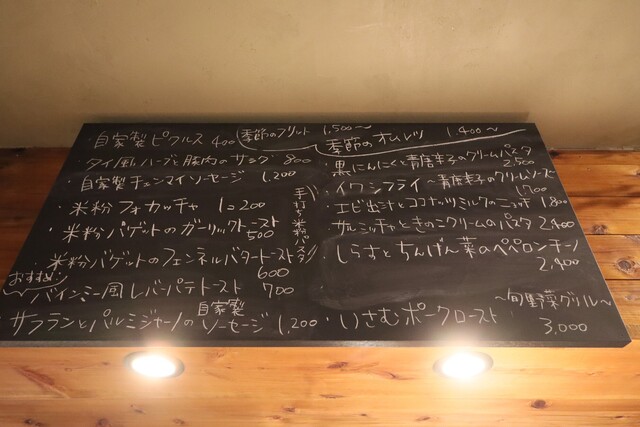 自家製ピクルス 400
季節のフリット 1,500〜
季節のオムレツ 1,400〜
・タイ風ハーブと豚肉のサラダ 800
・自家製チェンマイソーセージ 1,200
・米粉フォカッチャ 1=200
・米粉バゲットのガーリックトースト
500
・米粉バゲットのフェンネルバタートースト
600
おすすめ!
バインミー風レバーパテトースト 700
サフランとパルミジャーノの自家製ソーセージ 1,200
手打ち米粉パスタ
・黒にんにくと青唐辛子のクリームパスタ
2,500
・イワシフライ〜青唐辛子のクリームソース〜
1,700
・エビ出汁とココナッツミルクのニョッキ 1,800
・サルシッチャときのこクリームのパスタ 2,400
・しらすとちんげん菜のペペロンチーノ
2,400
・いさむポークロースト
〜旬野菜グリル〜
3,000